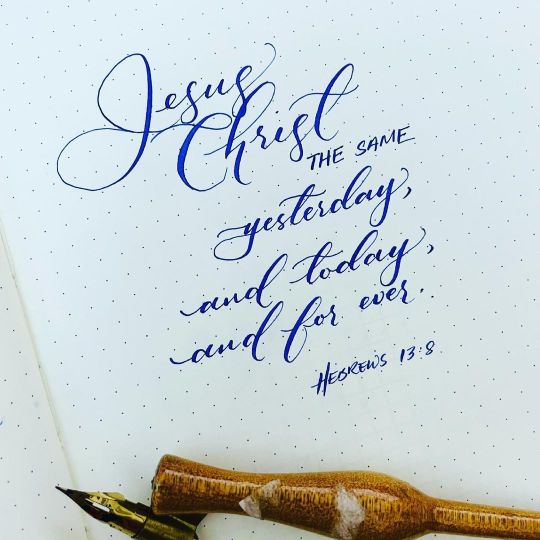 Jesus
Christ
THE SAME
yesterday,
and today,
and for ever.
HEBREWS 13:8